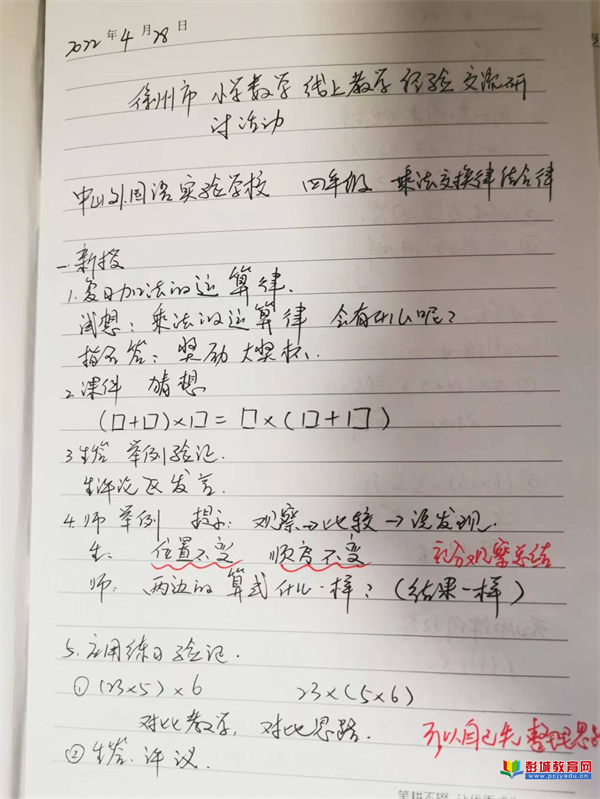 2022年4月28日
徐州市 小学数学 线上教学 经验 交流研
讨活动
中山外国语实验学校 四年级 乘法交换律结合律
一.新授
1.复习加法的运算律.
试想:乘法的运算律 会有什么呢?
指名答:奖励大奖杯、
2.课件 猜想
(□+□)×□=□×(□+□)
3.生答 举例验证.
生评论区发言.
4.师 举例 提示:观察→比较→说发现.
生: 位置不变 顺序不变 充分观察总结
师: 两边的算式什么一样?(结果一样)
5.应用练习验证.
①(23×5)×6 23×(5×6)
对比教学,对比思路. 可以自己先整理思
②生答.评议.
彭城教育网
www.pcjyedu.cn